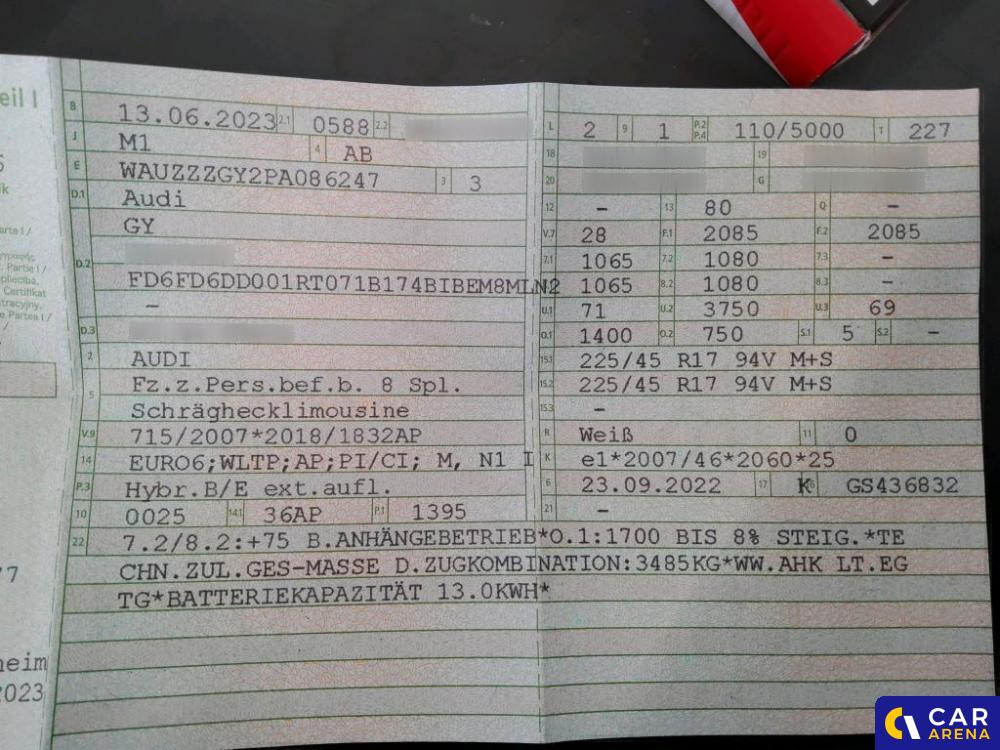 eil I
B 13.06.2023 2.1 0588 2.2
J M1 4 AB
E WAUZZZGY2PA086247 3 3
D.1 Audi
GY
D.2
FD6FD6DD001RT071B174BIBEM8MLN2
–
D.3
2 AUDI
5 Fz.z.Pers.bef.b. 8 Spl.
Schräghecklimousine
V.9 715/2007*2018/1832AP
14 EURO6;WLTP;AP;PI/CI; M, N1 I
P.3 Hybr.B/E ext.aufl.
10 0025 14.1 36AP P.1 1395
L 2 9 1 P.2 P.4 110/5000 T 227
18 19
20 G
12 – 13 80 Q –
V.7 28 F.1 2085 F.2 2085
7.1 1065 7.2 1080 7.3 –
1065 8.2 1080 –
U.1 71 U.2 3750 U.3 69
O.1 1400 O.2 750 S.1 5 S.2 –
15.1 225/45 R17 94V M+S
15.2 225/45 R17 94V M+S
15.3 –
R Weiß 11 0
K e1*2007/46*2060*25
6 23.09.2022 17 K GS436832
21 –
22 7.2/8.2:+75 B.ANHÄNGEBETRIEB*O.1:1700 BIS 8% STEIG.*TE
CHN.ZUL.GES-MASSE D.ZUGKOMBINATION:3485KG*WW.AHK LT.EG
TG*BATTERIEKAPAZITÄT 13.0KWH*
heim
2023
CAR
ARENA